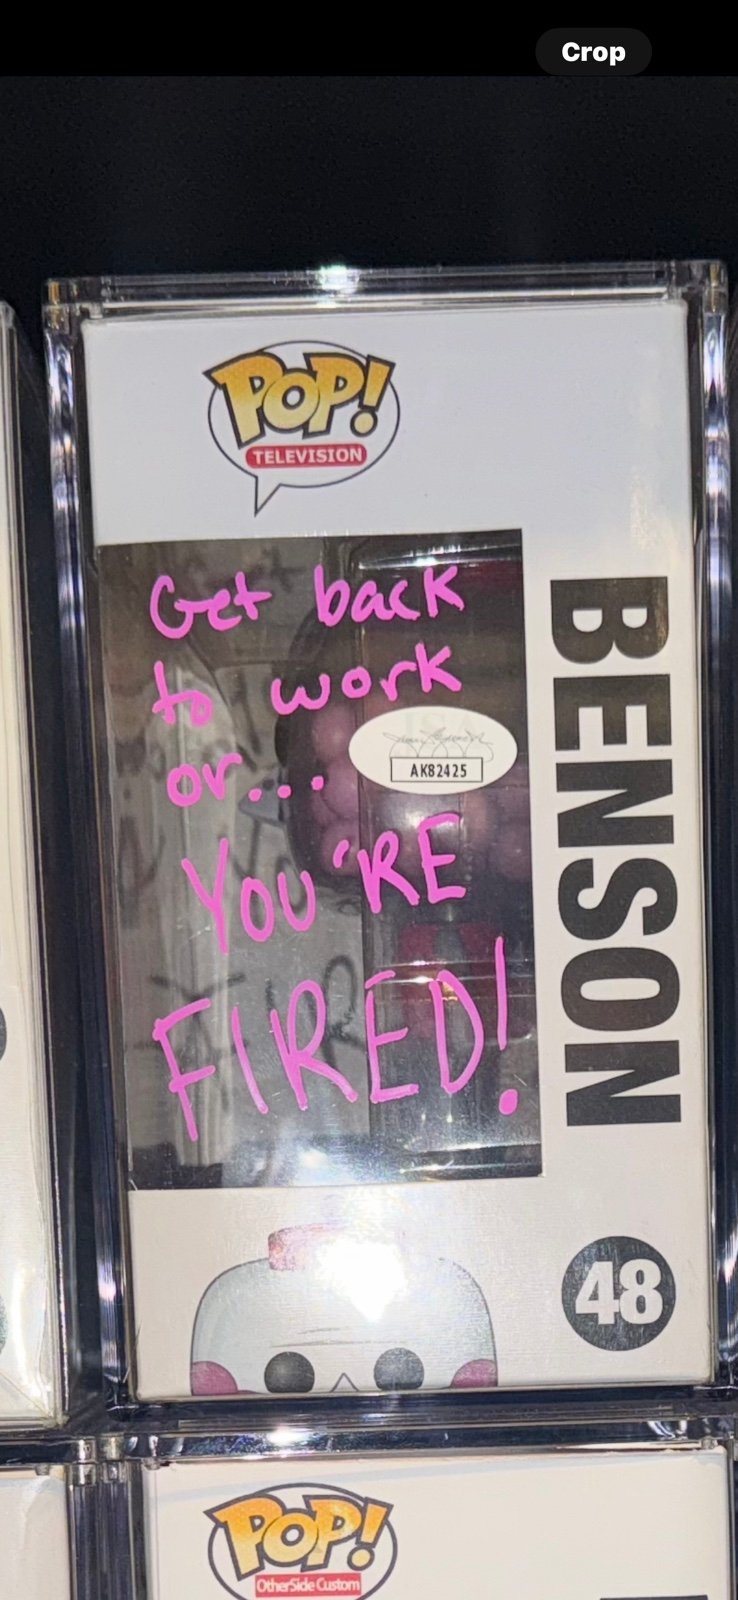 Crop
POP!
TELEVISION
Get back
to work
or...
AK82425
YOU'RE
FIRED!
BENSON
48
POP!
OtherSide Custom